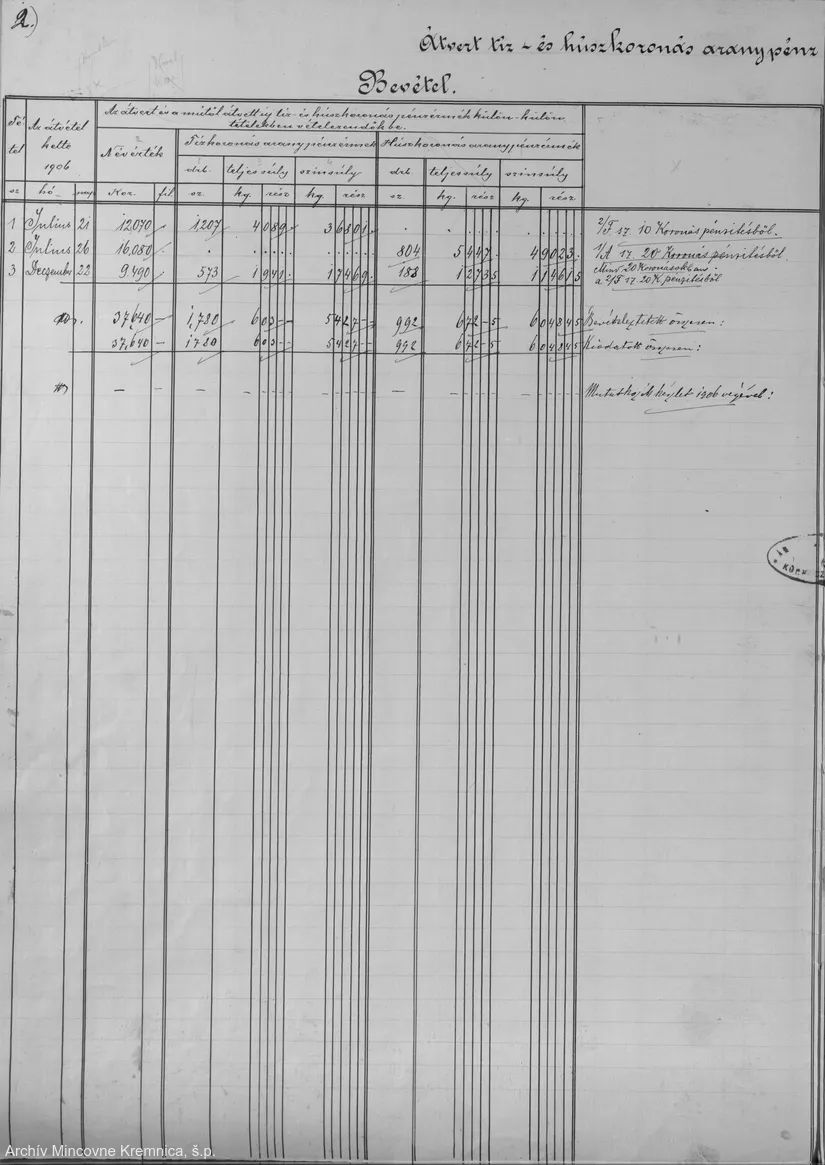 2.)
Átvert tiz - és húszkoronás arany pénz
Bevétel.
Az átvert és a mütól átvett uj tiz- és húszkoronás pénzérmék külön-külön
tételekben vételezendők be.
Té-
tel
sz
Az átvétel
kelte
1906
hó
nap
Névérték
Kor.
fil.
Tizkoronás arany pénzérmék
Húszkoronás arany pénzérmék
drb.
teljes súly
szinsúly
drb.
teljes súly
szinsúly
sz
kg.
rész
kg.
rész
sz
kg.
rész
kg.
rész
1 Julius 21 12070 - 1207 4 089 - 3 6801 . . . . . . 2/F sz. 10 Koronás pénzitésből.
2 Julius 26 16,080 . . . . . 804 5 447 . 4 9023 . 1/A sz. 20 Koronás pénzitésből
3 Deczember 22 9.490 - 573 1 941 - 1 7469 - 188 1 2735 1 14615
a 2/F sz. 20 K pénzitésből
37640 - 1,780 6 03 - - 5 427 - - 992 6 72 - 5 6 04845 Bevételeztetek összesen :
37,640 - 1780 6 03 - - 5 427 - - 992 6 72 - 5 6 04845 Kiadatok összesen :
- - - - - - - - - - - - Mutatkozik készlet 1906 végével :
Archív Mincovne Kremnica, š.p.